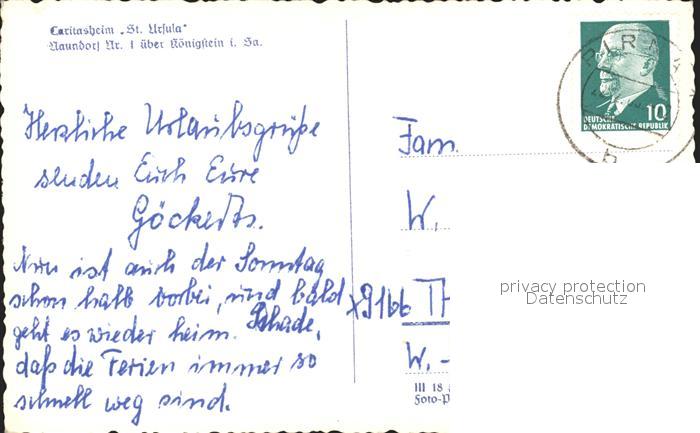 Caritasheim „St. Ursula“
Naundorf Nr. 1 über Königstein i. Sa.
Herzliche Urlaubsgrüße
senden Euch Eure
Göckerts.
Nun ist auch der Sonntag
schon halb vorbei, und bald
geht es wieder heim. Schade,
daß die Ferien immer so
schnell weg sind.
PIRNA
10
DEUTSCHE
DEMOKRATISCHE REPUBLIK
Fam.
W.
x9166
W. -
III 18
Foto-P
privacy protection
Datenschutz